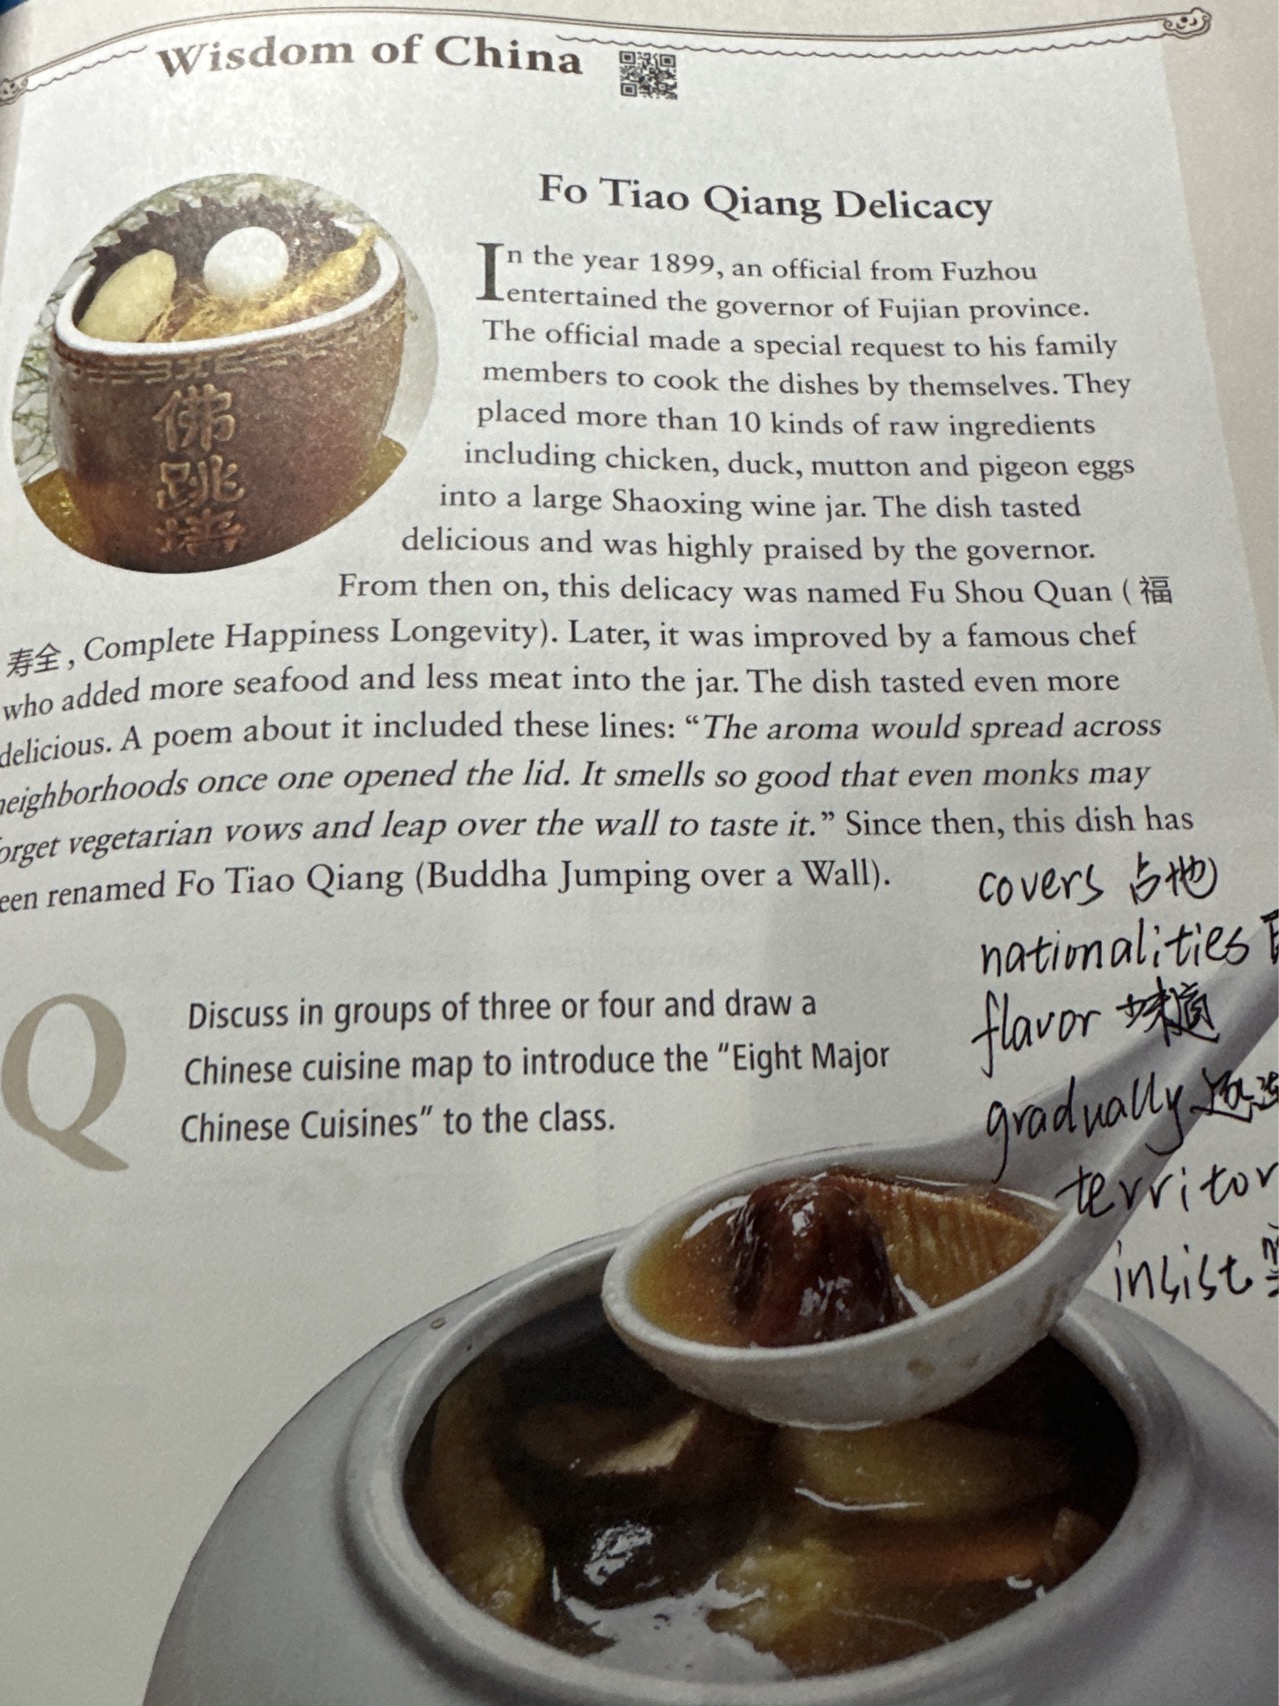 Wisdom of China
Fo Tiao Qiang Delicacy
In the year 1899, an official from Fuzhou
entertained the governor of Fujian province.
The official made a special request to his family
members to cook the dishes by themselves. They
placed more than 10 kinds of raw ingredients
including chicken, duck, mutton and pigeon eggs
into a large Shaoxing wine jar. The dish tasted
delicious and was highly praised by the governor.
From then on, this delicacy was named Fu Shou Quan (福
寿全, Complete Happiness Longevity). Later, it was improved by a famous chef
who added more seafood and less meat into the jar. The dish tasted even more
delicious. A poem about it included these lines: “The aroma would spread across
neighborhoods once one opened the lid. It smells so good that even monks may
orget vegetarian vows and leap over the wall to taste it.” Since then, this dish has
een renamed Fo Tiao Qiang (Buddha Jumping over a Wall).
佛
跳
墙
covers 占地
nationalities
flavor 味道
gradually
territor
insist
Q
Discuss in groups of three or four and draw a
Chinese cuisine map to introduce the “Eight Major
Chinese Cuisines” to the class.